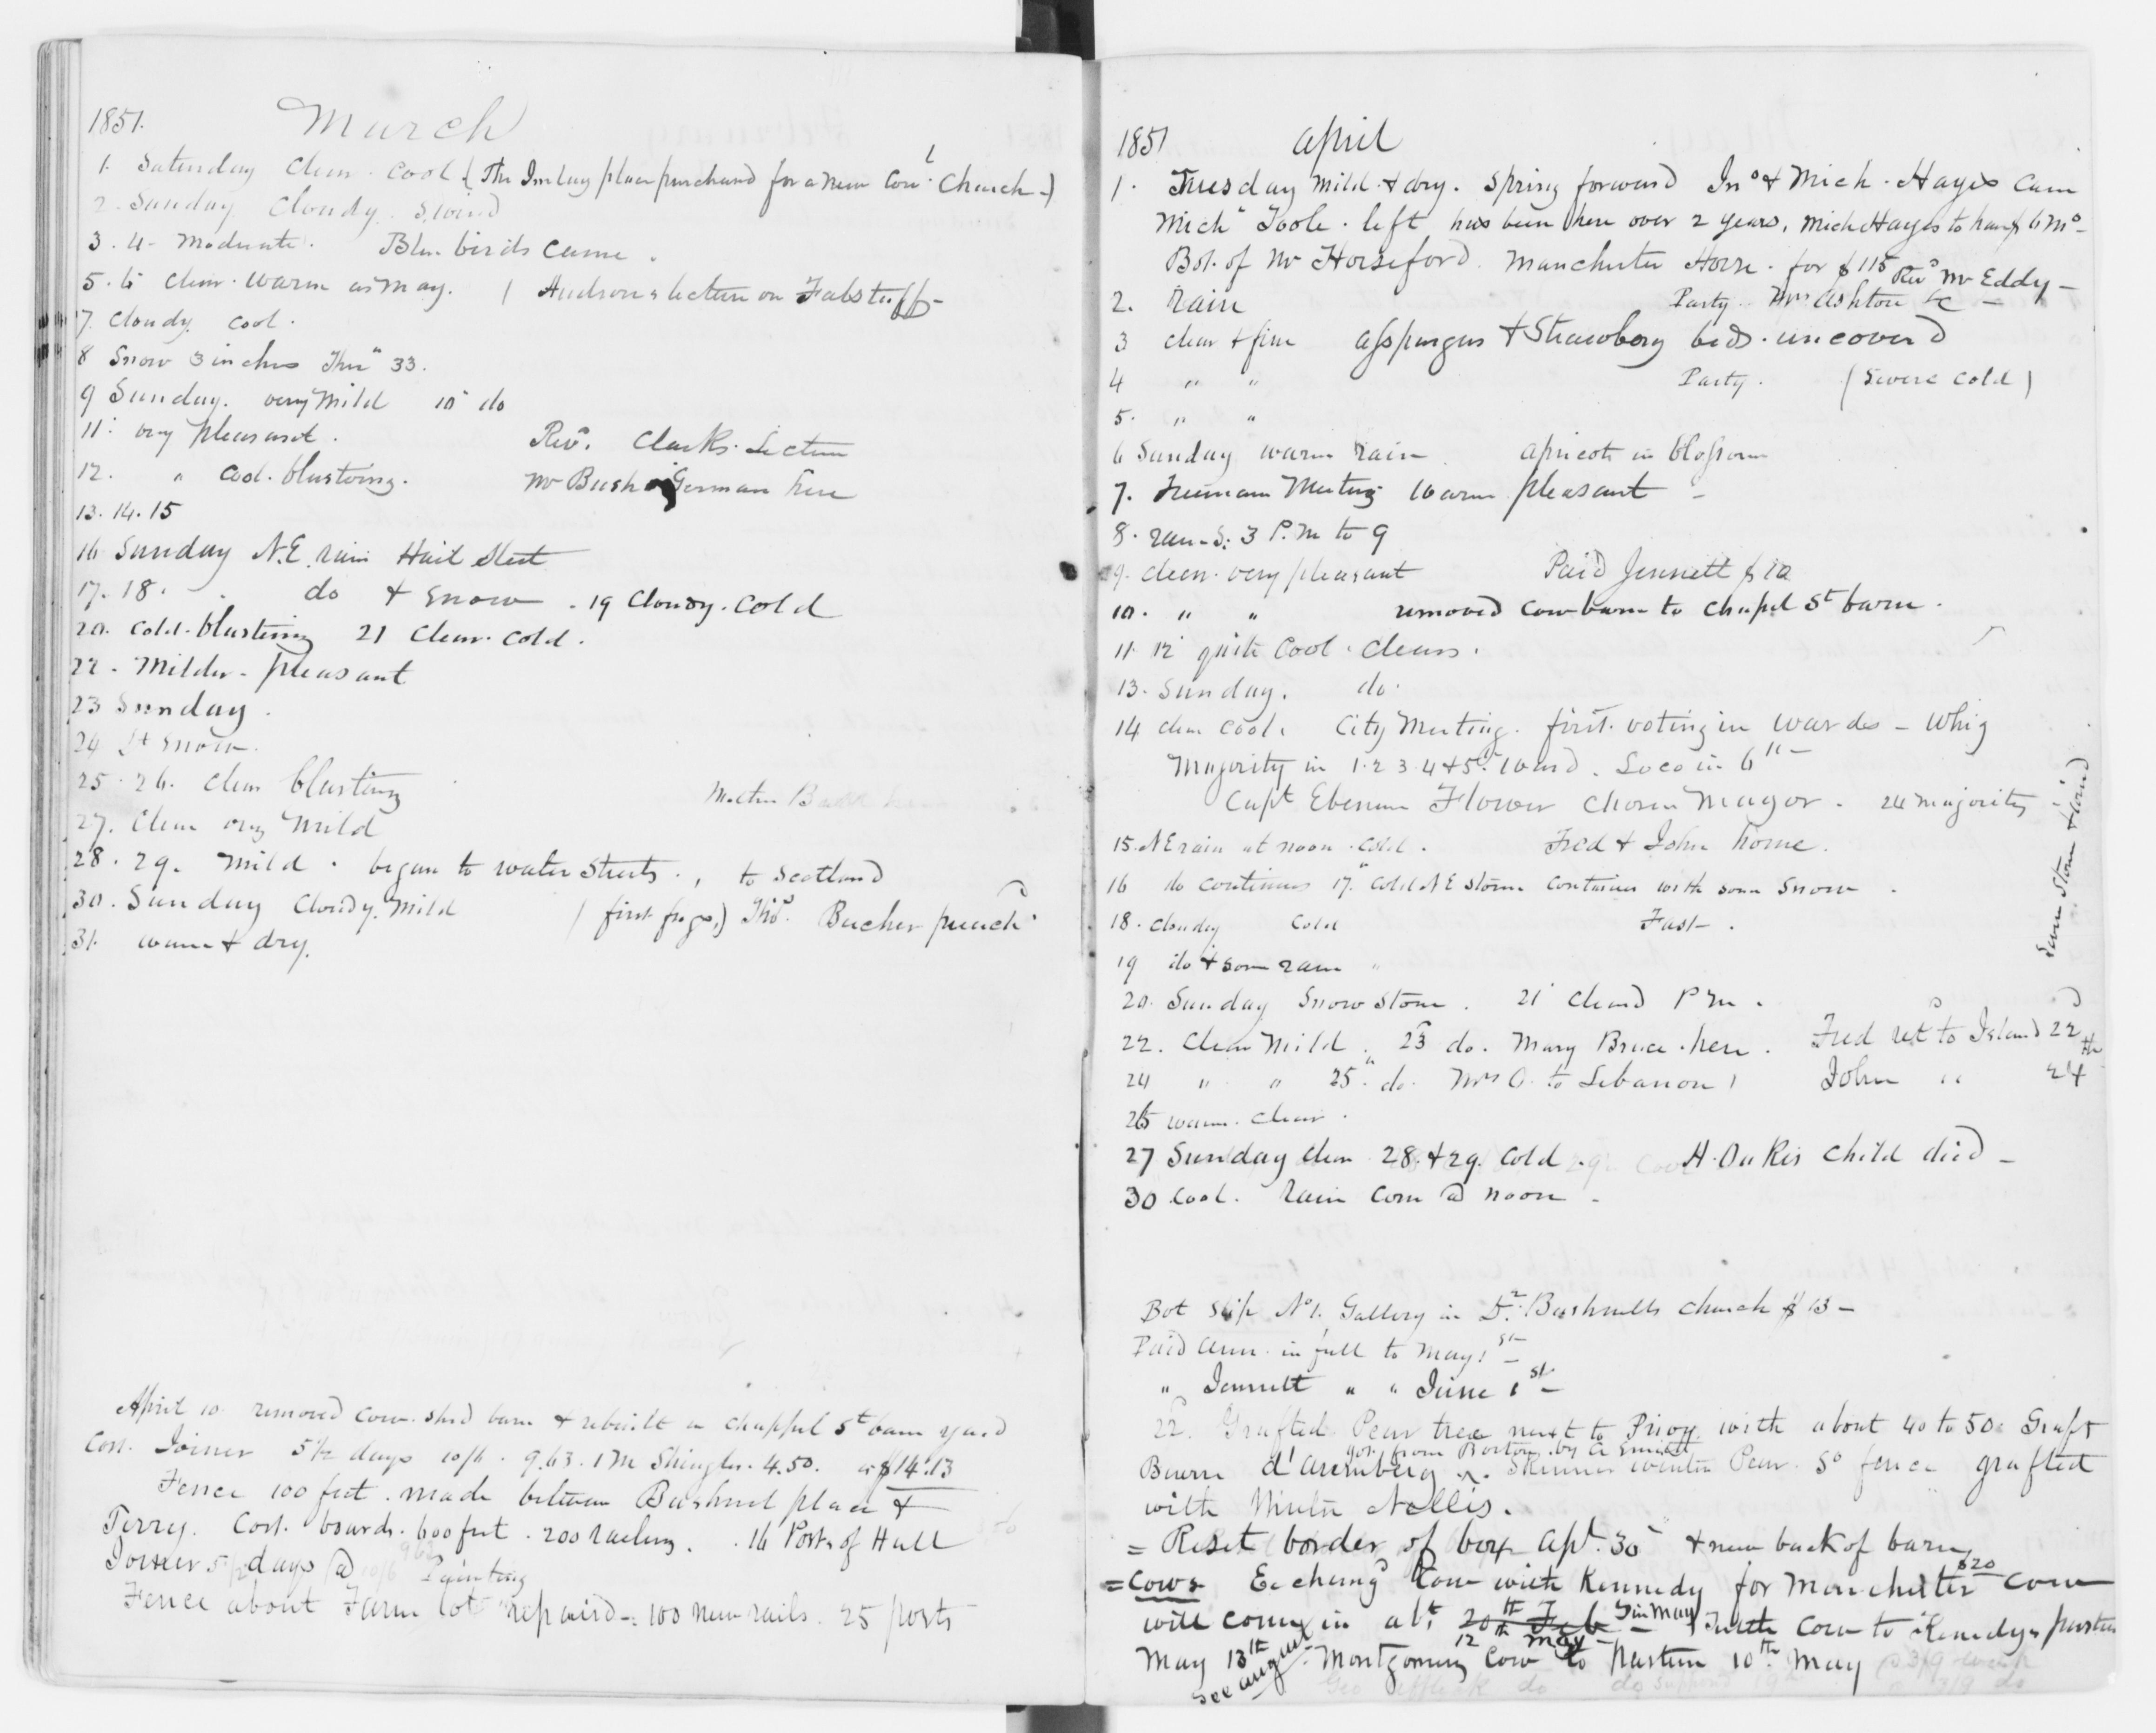 1851. March
1. Saturday Clear. Cool (The Imlay place purchased for a new Con.l Church.)
2. Sunday Cloudy. S. wind
3. 4. Moderate. Blue birds came.
5. 6 Clear. Warm as May. ( Hudsons lecture on Falstaff
7. Cloudy cool.
8 Snow 3 inches Ther 33.
9 Sunday. very mild 10 do
11. very pleasant. Revd. Clarks. Lecture
12. " Cool. blustering. Mr Bush German here
13. 14. 15
16 Sunday N.E. rain Hail Sleet
17. 18. do & Snow. 19 Cloudy. Cold
20. Cold. blustering 21 Clear. Cold.
22. Milder. pleasant
23 Sunday.
24 Lt Snow.
25. 26. Clear blustering Mother
27. Clear very mild
28. 29. Mild. began to water Streets. , to Scotland
30. Sunday Cloudy. Mild ( first frogs,) Thos. Beecher preachd
31. warm & dry.
April 10 removed Cow shed barn & rebuilt in Chappel St barn yard
Cost. Joiner 5 1/2 days 10/6. 9.63. 1 M Shingles. 4.50. $14.13
Fence 100 feet. made between Bushnel place &
Terry. Cost. boards. 600 feet. 200 railing. . 16 Posts of Hall
Joiner 5 1/2 days @ 10/6 9.63 Painting
Fence about Farm lot repaird. 100 new rails. 25 posts
1851 April
1. Tuesday Mild. & dry. Spring forward Jno & Mich. Hayes Came
Michl Toole. left has been here over 2 years. Mich Hayes to have 6 mo
Bot. of Mr Horseford Manchester Horse. for $115 Revd Mr Eddy
2. Rain Party. Mrs Ashton &c
3 clear & fine Asspargus & Strawbery beds. uncoverd
4 " " Party. (Severe Cold)
5. " "
6 Sunday warm rain. Apricots in blossom
7. Freeman Meeting Warm pleasant
8. rain S. 3 P.M to 9
9. Clear. very pleasant Paid Jennett $10
10. " " removed Cow barn to Chapel St barn.
11. 12 quite Cool. Clears.
13. Sunday. do.
14 clear Cool. City Meeting. first. voting in wards - Whig
Majority in 1. 2 3. 4 & 5th Ward. Loco in 6th
Capt Ebenezer Flower Chosen Mayor. 24 majority
15. N E rain at noon. Cold. Fred & John home.
16 do Continues 17. Cold N E storm Continues with some Snow.
18. Cloudy Cold Fast.
19 do & some rain "
20. Sunday Snow Storm. 21 Cleard P M.
Storm
22. Clear Mild. 23 do. Mary Bruce. here. Fred retd to Island 22d
24 " " 25. do. Mrs O. to Lebanon ) John " 24th
26 warm. Clear.
27 Sunday Clear 28. & 29. Cold. H. Oakes Child died
30 Cool. Rain Com @ noon.
Bot Slip No 1. Gallery in Dr. Bushnells Church $13
Paid Ann. in full to May 1st
" Jennett " " June 1st
22. Grafted Pear tree next to Privy with about 40 to 50 Graft
got from Boston by
Beurre d'aremberg &. Skinner winter Pear. So fence grafted
with Winter Nellis.
= Reset border of box Apl. 30 & new back of barn
= Cows Exchangd Cow with Kennedy for Manchester $20 Cow
will come in abt 20th Feb 5 in May
12th May Cow to Kenedys pasture
May 13th Montgomery Cow to pasture 10th May
See August